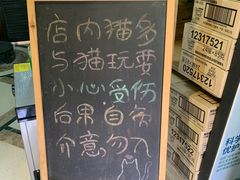 店内猫多
与猫玩耍
小心受伤
后果自负
介意勿入
12317521
12317520